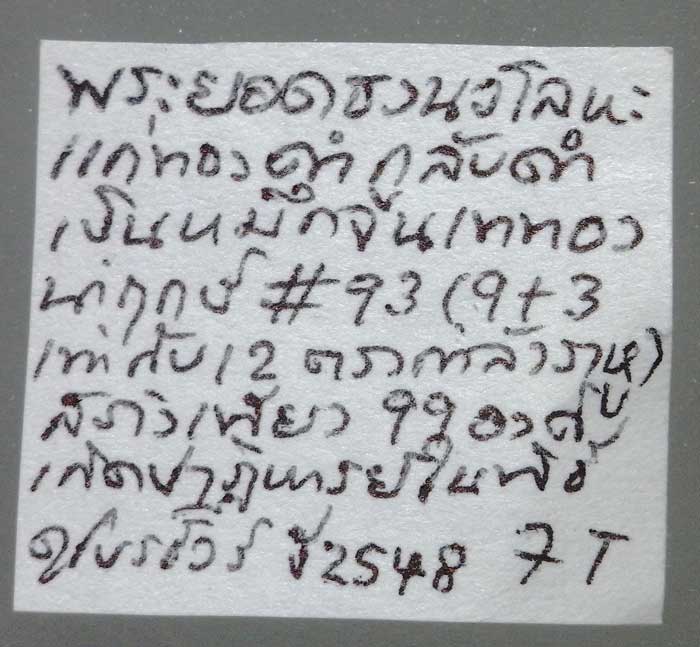 พระยอดธงนวโลหะ
แก่ทองคำ กูลับดำ
เป็นหมึกจีนเททอง
นำฤกษ์ #93 (9+3
เท่ากับ12 ตรงกำลังราหู)
สร้างเพียง 99 องค์
เกิดปาฏิหารย์ในพิธี
ปี2548 7 T